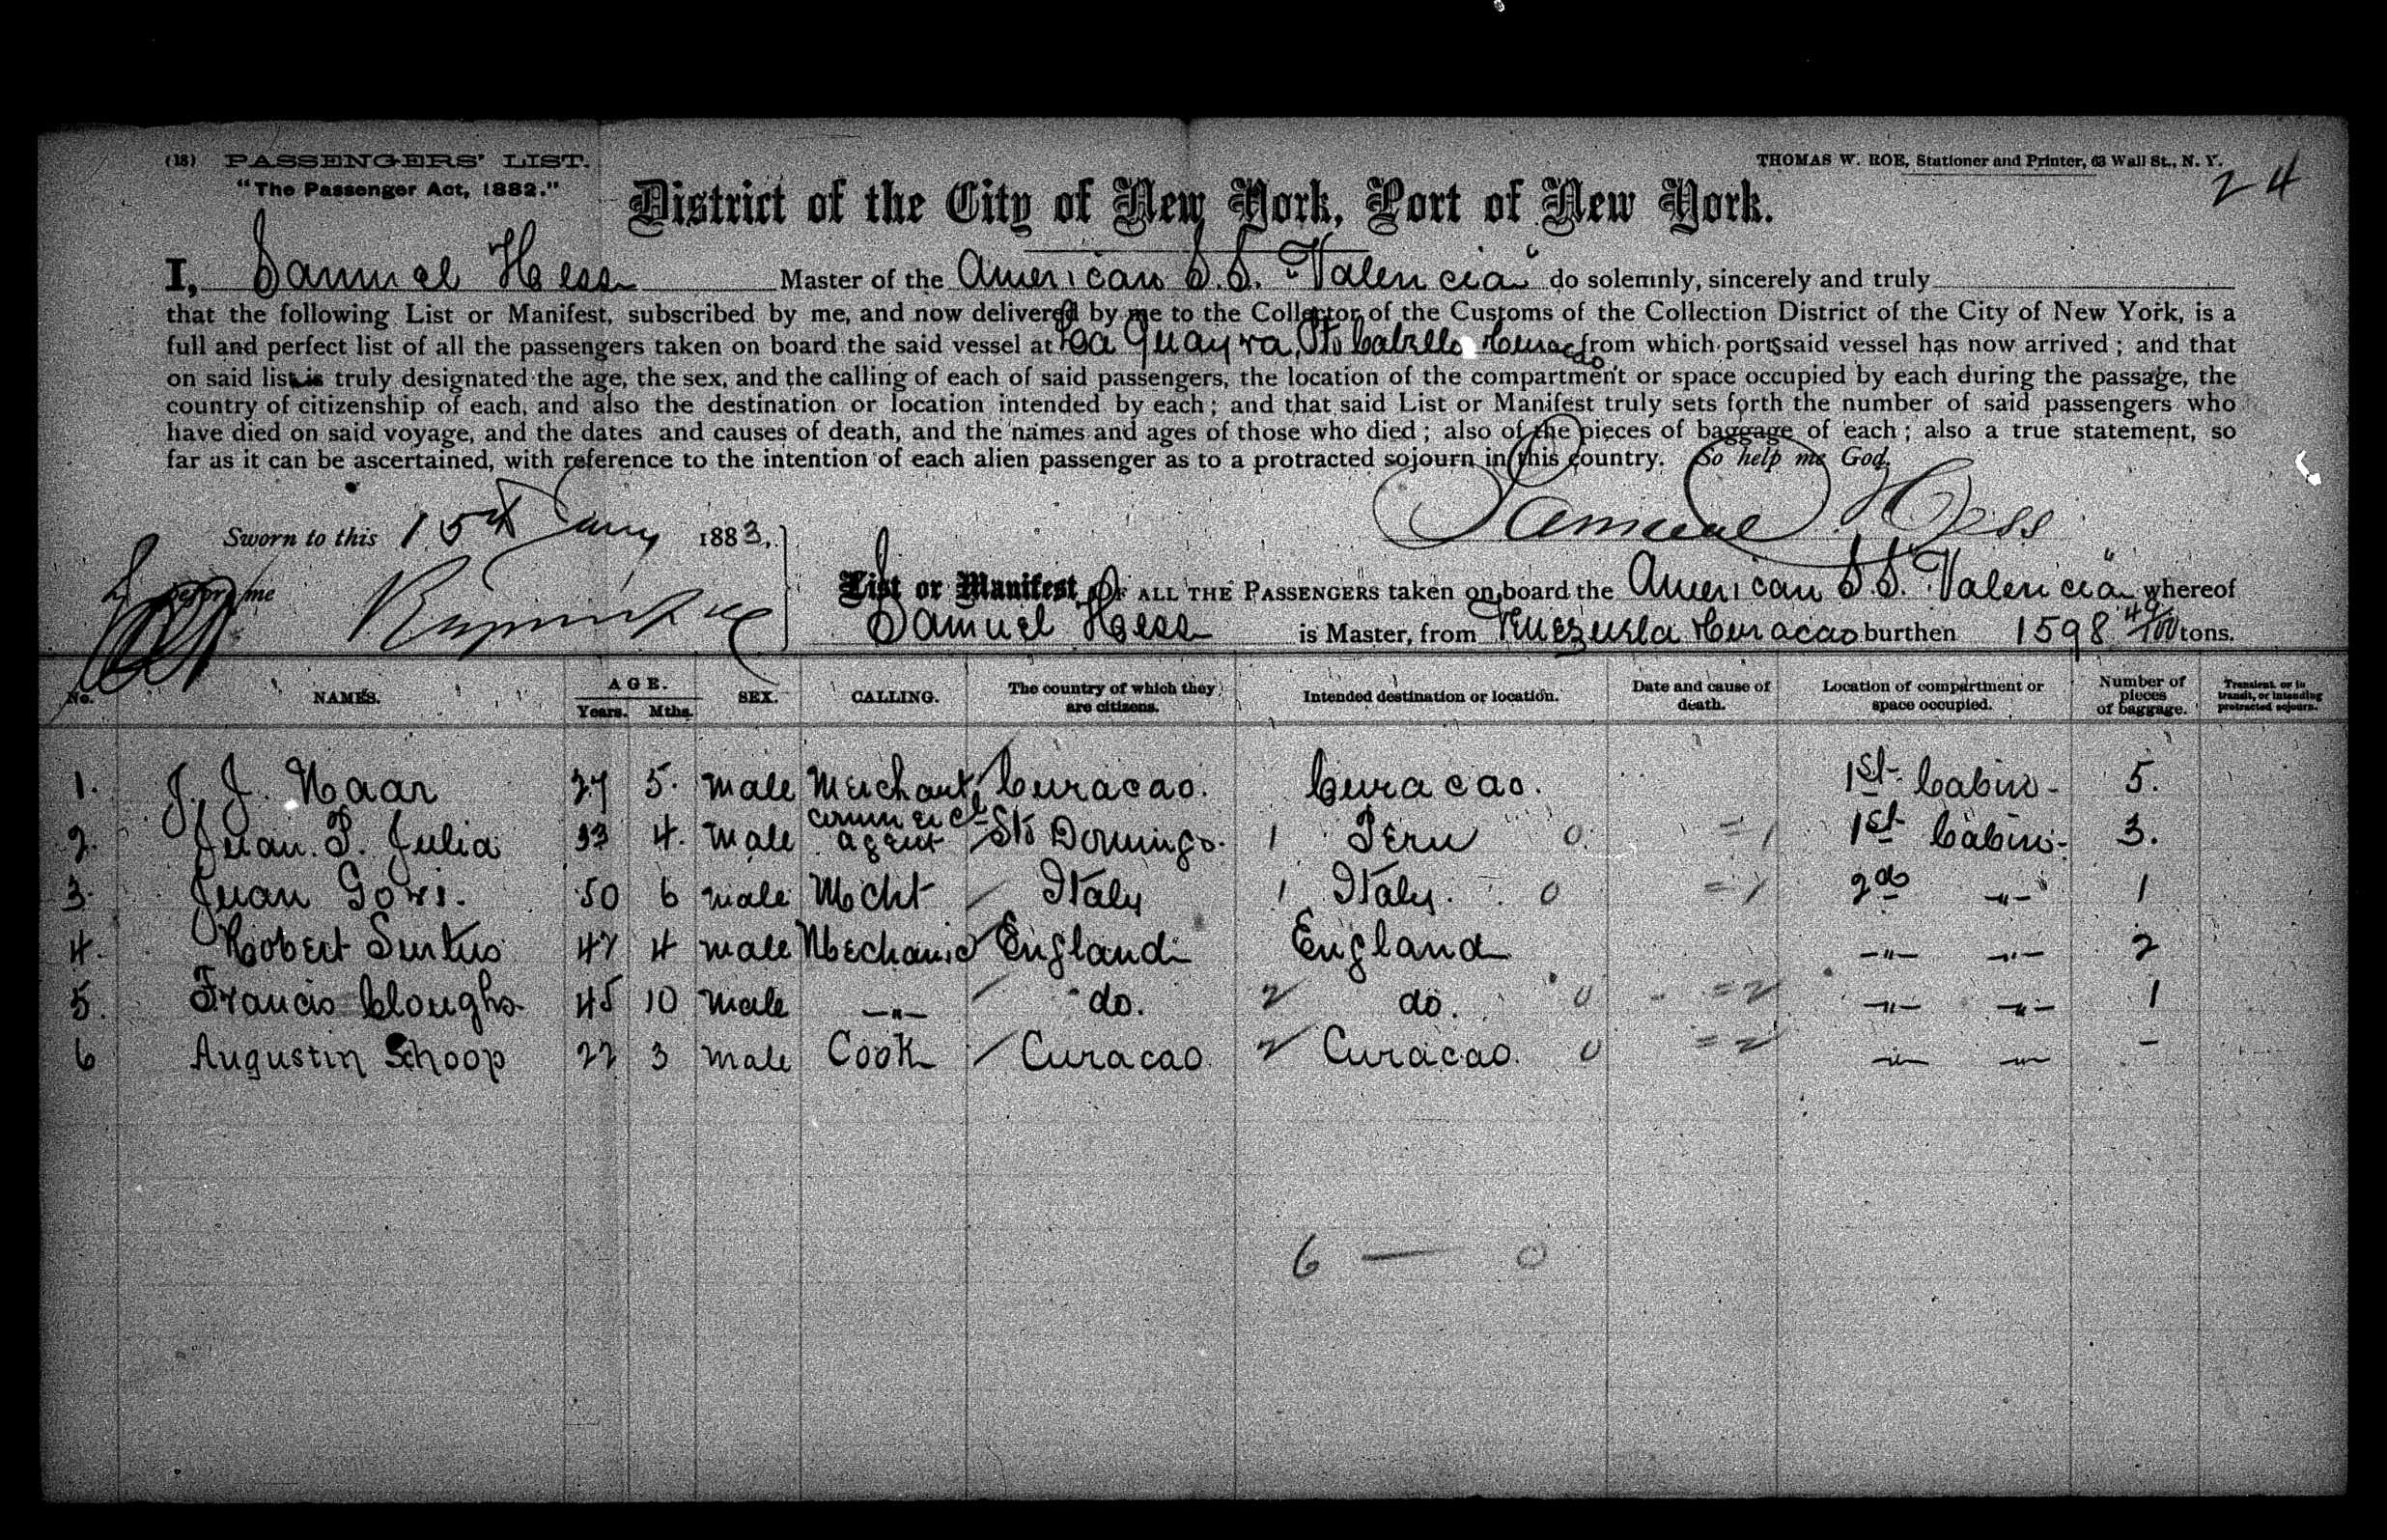 (18) PASSENGERS' LIST.
THOMAS W. ROE, Stationer and Printer, 63 Wall St., N. Y.
"The Passenger Act, 1882."
24
District of the City of New York, Port of New York.
I, Samuel Hess Master of the American S.S. "Valencia" do solemnly, sincerely and truly
that the following List or Manifest, subscribed by me, and now delivered by me to the Collector of the Customs of the Collection District of the City of New York, is a
full and perfect list of all the passengers taken on board the said vessel at La Guayra, Pto Cabello Curacao from which ports said vessel has now arrived; and that
on said list is truly designated the age, the sex, and the calling of each of said passengers, the location of the compartment or space occupied by each during the passage, the
country of citizenship of each, and also the destination or location intended by each; and that said List or Manifest truly sets forth the number of said passengers who
have died on said voyage, and the dates and causes of death, and the names and ages of those who died; also of the pieces of baggage of each; also a true statement, so
far as it can be ascertained, with reference to the intention of each alien passenger as to a protracted sojourn in this country. So help me God.
Samuel Hess
Sworn to this 15th Jany 1883,
before me
List or Manifest OF ALL THE PASSENGERS taken on board the American S.S. "Valencia" whereof
Samuel Hess is Master, from Venezuela Curacao burthen 1598 49/100 tons.
No. NAMES. AGE. Years. Mths. SEX. CALLING. The country of which they are citizens. Intended destination or location. Date and cause of death. Location of compartment or space occupied. Number of pieces of baggage. Transient, or in transit, or intending protracted sojourn.
1. J. J. Naar 27 5. male Merchant Curacao. Curacao. 1st Cabin - 5.
2. Juan. P. Julia 33 4. male Commercl agent / Sto Domingo. 1 Peru 0 = 1 1st Cabin - 3.
3. Juan 50 6 male Mcht / Italy 1 Italy. 0 = 1 2do -"- 1
4. Robert 47 4 male Mechanic England England -"- -"- 2
5. Francis Cloughs 45 10 male -"- / do. 2 do. 0 = 2 -"- -"- 1
6 Augustin Schoop 22 3 male Cook / Curacao 2 Curacao. 0 = 2 -"- -"- -
6 — 0